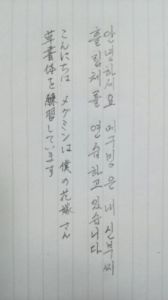 안녕하세요 메구밍은 내 신부씨
흘림체를 연습하고 있습니다
こんにちは メグミンは僕の花嫁さん
草書体を練習しています